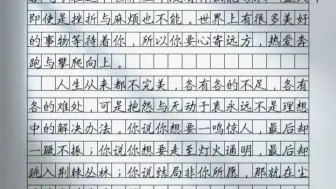 即使是挫折与麻烦也不能。世界上有很多美好
的事物等待着你，所以你要心寄远方，热爱奔
跑与攀爬向上。
人生从来都不完美，各有各的不足，各有
各的难处，可是抱怨与无动于衷永远不是理想
中的解决办法。你说你想要一鸣惊人，最后却
一蹶不振；你说你想要走至灯火通明，最后却
跳入荆棘丛林；你说结局非你所愿，那就在尘